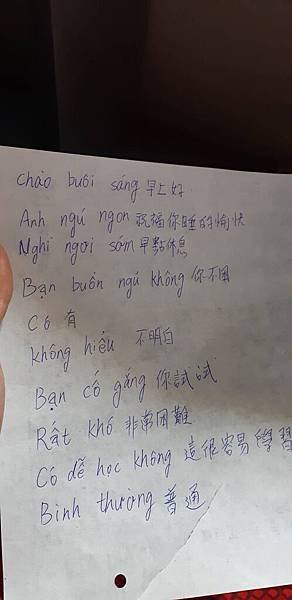 chào buổi sáng 早上好
Anh ngủ ngon 祝福你睡的愉快
Nghỉ ngơi sớm 早點休息
Bạn buồn ngủ không 你不困
Có 有
không hiểu 不明白
Bạn cố gắng 你試試
Rất khó 非常困難
Có dễ học không 這很容易學習
Bình thường 普通